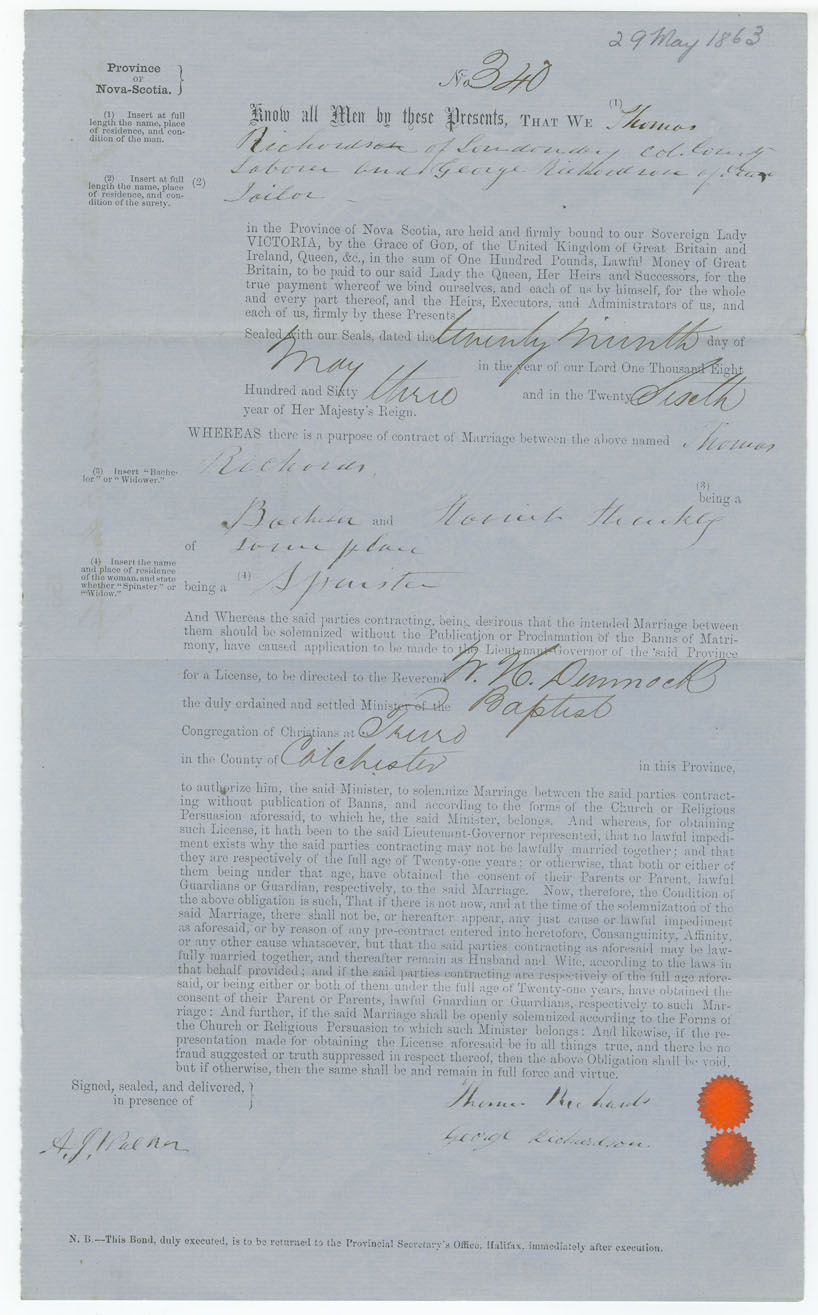 29 May 1863
Province
OF
Nova-Scotia.
No 340
(1) Insert at full
length the name, place
of residence, and con-
dition of the man.
Know all Men by these Presents, THAT WE (1) Thomas
Richardson of Londonderry Col. County
(2) Insert at full
length the name, place
of residence, and con-
dition of the surety.
(2) Laborer and George Richardson of
Tailor
in the Province of Nova Scotia, are held and firmly bound to our Sovereign Lady
VICTORIA, by the Grace of GOD, of the United Kingdom of Great Britain and
Ireland, Queen, &c., in the sum of One Hundred Pounds, Lawful Money of Great
Britain, to be paid to our said Lady the Queen, Her Heirs and Successors, for the
true payment whereof we bind ourselves, and each of us by himself, for the whole
and every part thereof, and the Heirs, Executors, and Administrators of us, and
each of us, firmly by these Presents
Sealed with our Seals, dated the twenty ninth day of
May in the year of our Lord One Thousand Eight
Hundred and Sixty three and in the Twenty Sixth
year of Her Majesty's Reign.
WHEREAS there is a purpose of contract of Marriage between the above named Thomas
Richards
(3) Insert "Bache-
lor" or "Widower."
(3)
being a
Bachelor and Harriet
of same place
(4) Insert the name
and place of residence
of the woman, and state
whether "Spinster" or
"Widow."
being a (4) Spinster
And Whereas the said parties contracting, being desirous that the intended Marriage between
them should be solemnized without the Publication or Proclamation of the Banns of Matri-
mony, have caused application to be made to the Lieutenant-Governor of the said Province
for a License, to be directed to the Reverend W. H. Dimmock
the duly ordained and settled Minister of the Baptist
Congregation of Christians at Truro
in the County of Colchester in this Province,
to authorize him, the said Minister, to solemnize Marriage between the said parties contract-
ing without publication of Banns, and according to the forms of the Church or Religious
Persuasion aforesaid, to which he, the said Minister, belongs. And whereas, for obtaining
such License, it hath been to the said Lieutenant-Governor represented, that no lawful impedi-
ment exists why the said parties contracting may not be lawfully married together; and that
they are respectively of the full age of Twenty-one years; or otherwise, that both or either of
them being under that age, have obtained the consent of their Parents or Parent, lawful
Guardians or Guardian, respectively, to the said Marriage. Now, therefore, the Condition of
the above obligation is such, That if there is not now, and at the time of the solemnization of the
said Marriage, there shall not be, or hereafter appear, any just cause or lawful impediment
as aforesaid, or by reason of any pre-contract entered into heretofore, Consanguinity, Affinity,
or any other cause whatsoever, but that the said parties contracting as aforesaid may be law-
fully married together, and thereafter remain as Husband and Wife, according to the laws in
that behalf provided; and if the said parties contracting are respectively of the full age afore-
said, or being either or both of them under the full age of Twenty-one years, have obtained the
consent of their Parent or Parents, lawful Guardian or Guardians, respectively to such Mar-
riage: And further, if the said Marriage shall be openly solemnized according to the Forms of
the Church or Religious Persuasion to which such Minister belongs: And likewise, if the re-
presentation made for obtaining the License aforesaid be in all things true, and there be no
fraud suggested or truth suppressed in respect thereof, then the above Obligation shall be void,
but if otherwise, then the same shall be and remain in full force and virtue.
Signed, sealed, and delivered,
in presence of
Thomas Richards
A. J. Walker
George Richardson.
N. B.—This Bond, duly executed, is to be returned to the Provincial Secretary's Office, Halifax, immediately after execution.